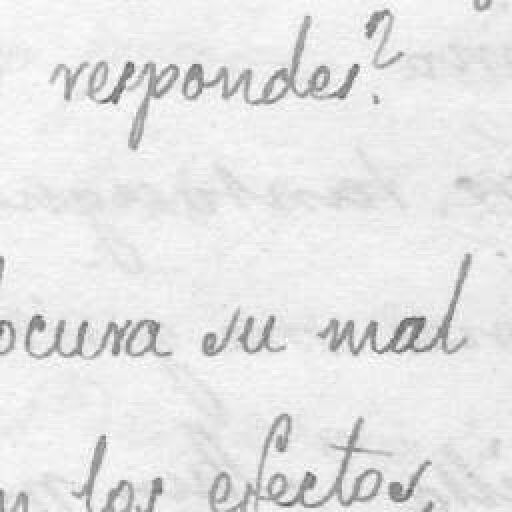 respondes?
locura su mal
los efectos,